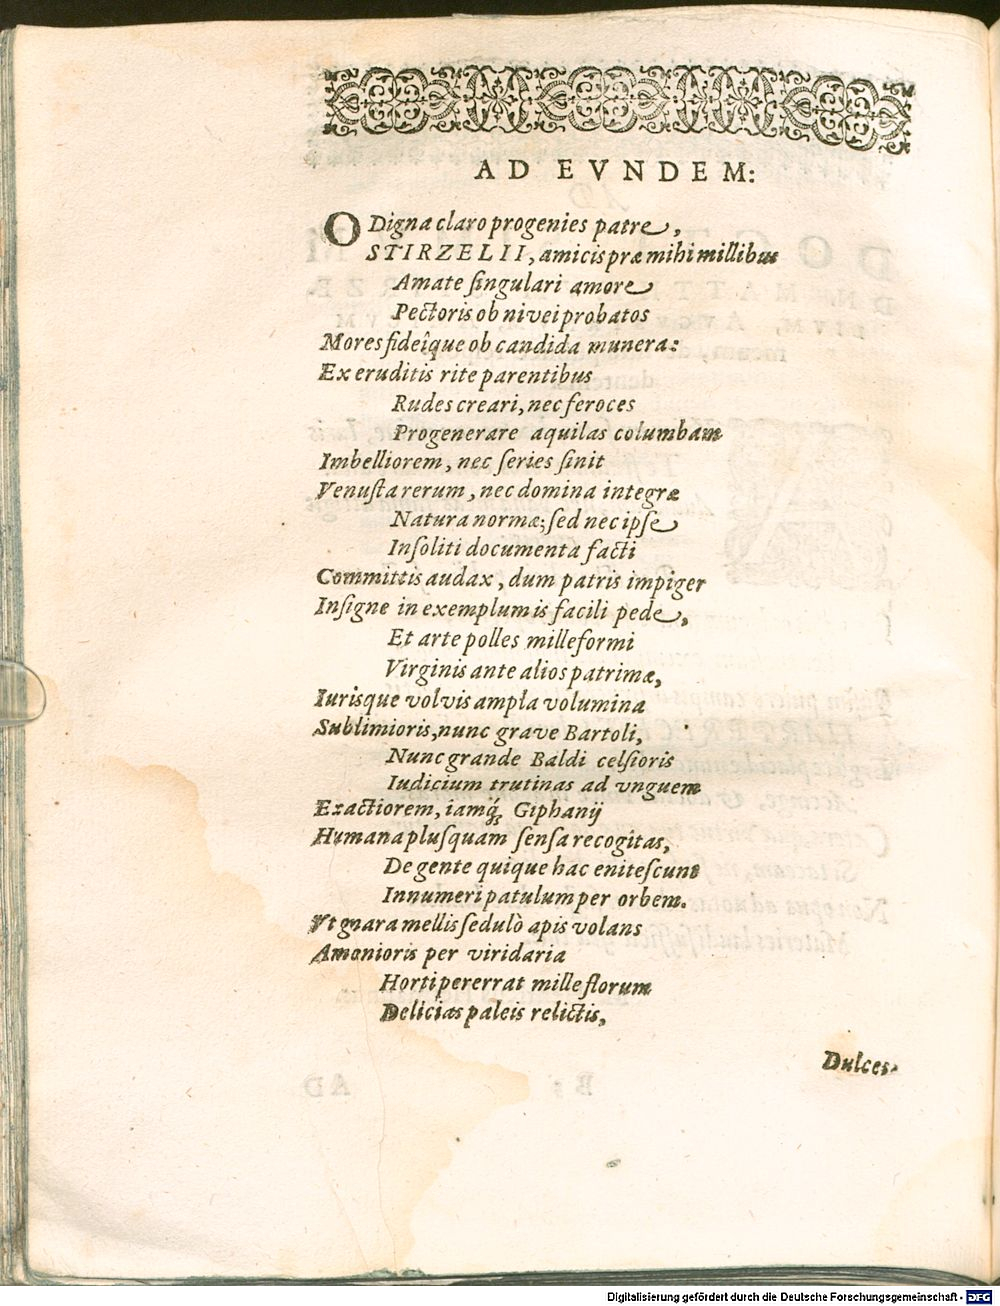 AD EVNDEM:
O Digna claro progenies patre,
STIRZELII, amicis præ mihi millibus
Amate ſingulari amore
Pectoris ob nivei probatos
Mores fideîque ob candida munera:
Ex eruditis rite parentibus
Rudes creari, nec feroces
Progenerare aquilas columbam
Imbelliorem, nec ſeries ſinit
Venuſta rerum, nec domina integræ
Natura normæ; ſed nec ipſe
Inſoliti documenta facti
Committis audax, dum patris impiger
Inſigne in exemplum is facili pede,
Et arte polles milleformi
Virginis ante alios patrimæ,
Iurisque volvis ampla volumina
Sublimioris, nunc grave Bartoli,
Nunc grande Baldi celſioris
Iudicium trutinas ad vnguem
Exactiorem, iamq́; Giphanij
Humana plusquam ſenſa recogitas,
De gente quique hac eniteſcunt
Innumeri patulum per orbem.
Vt gnara mellis ſedulò apis volans
Amœnioris per viridaria
Horti pererrat mille florum
Delicias paleis relictis,
Dulces
Digitalisierung gefördert durch die Deutsche Forschungsgemeinschaft - DFG